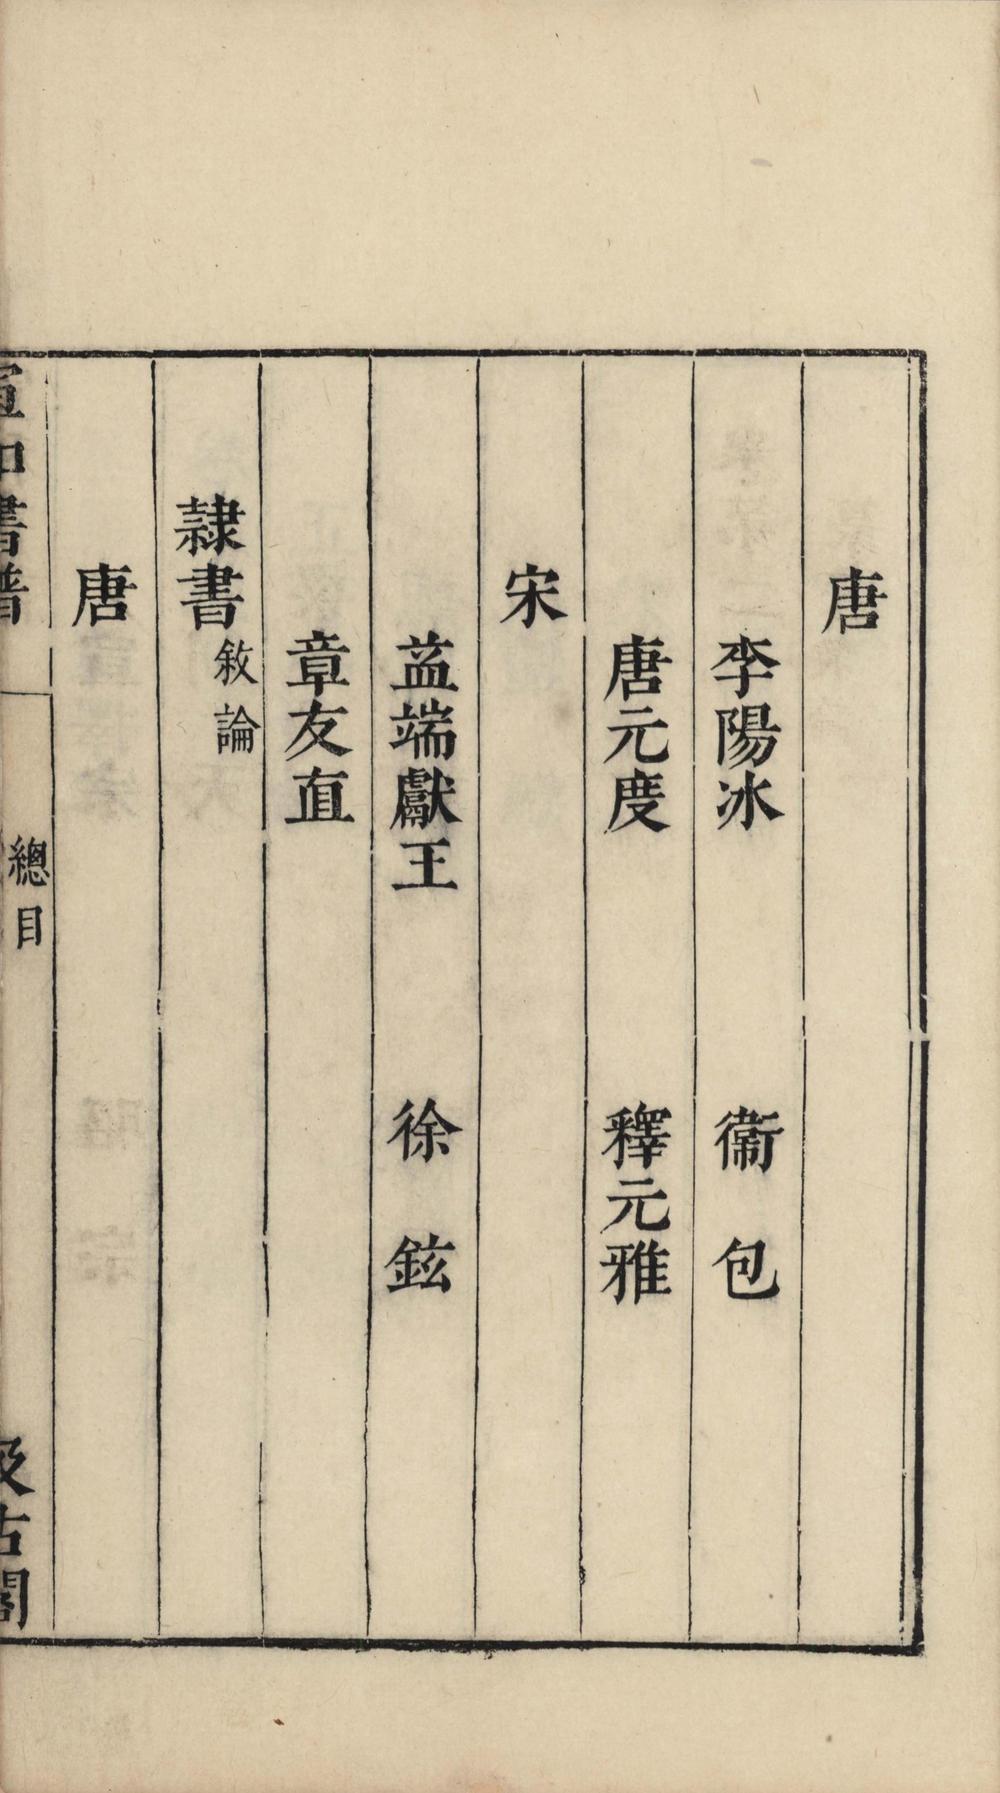 唐
李陽冰　衞包
唐元度　釋元雅
宋
益端獻王　徐鉉
章友直
隸書敘論
唐
宣和書譜　總目　汲古閣